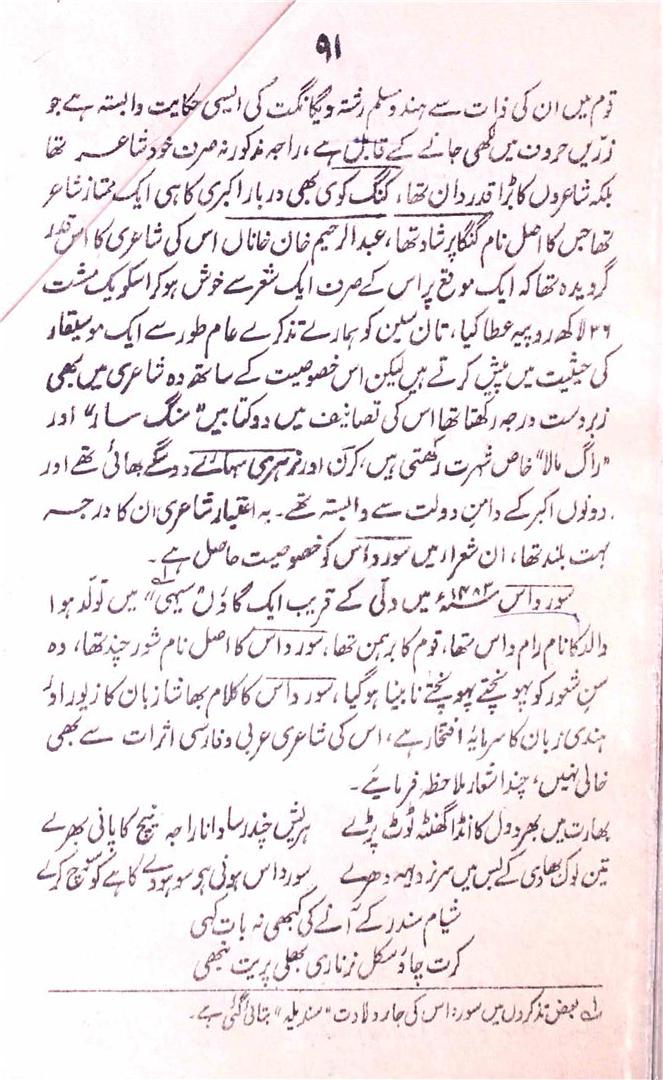 ۹۱
قوم میں ان کی ذات سے ہندو مسلم رشتہ و یگانگت کی ایسی حکایت وابستہ ہے جو
زرّیں حروف میں لکھی جانے کے قابل ہے، راجہ مذکور نہ صرف خود شاعر تھا
بلکہ شاعروں کا بڑا قدر دان تھا، گنگ کوی بھی دربار اکبری کا ہی ایک ممتاز شاعر
تھا جس کا اصل نام گنگا پرشاد تھا، عبدالرحیم خان خاناں اس کی شاعری کا اس قدر
گرویدہ تھا کہ ایک موقع پر اس کے صرف ایک شعر سے خوش ہو کر اسکو یک مشت
۳۶ لاکھ روپیہ عطا کیا، تان سین کو ہمارے تذکرے عام طور سے ایک موسیقار
کی حیثیت میں پیش کرتے ہیں لیکن اس خصوصیت کے ساتھ وہ شاعری میں بھی
زبردست درجہ رکھتا تھا اس کی تصانیف میں دو کتابیں "سنگ سار" اور
"راگ مالا" خاص شہرت رکھتی ہیں، کرن اور نرہری سہائے دو سگے بھائی تھے اور
دونوں اکبر کے دامن دولت سے وابستہ تھے۔ بہ اعتبار شاعری ان کا درجہ
بہت بلند تھا، ان شعراء میں سورداس کو خصوصیت حاصل ہے۔
سورداس ۱۴۸۳ء میں دلّی کے قریب ایک گاؤں "سیہی" میں تولّد ہوا
والد کا نام رام داس تھا، قوم کا برہمن تھا، سورداس کا اصل نام شور چند تھا، وہ
سنِ شعور کو پہونچتے پہونچتے نابینا ہو گیا، سورداس کا کلام بھاشا زبان کا زیور اور
ہندی زبان کا سرمایۂ افتخار ہے، اس کی شاعری عربی و فارسی اثرات سے بھی
خالی نہیں، چند اشعار ملاحظہ فرمایئے۔
بھارت میں بھردول کا انڈا گھنٹہ ٹوٹ پڑے ہریش چندر سا دانا راجہ نیچ کا پانی بھرے
تین لوک بھادی کے بس میں سرنر دیہہ دھرے سورداس ہونی ہو سو ہو دے کاہے کو سوچ کرے
شیام مندر کے آنے کی کبھی نہ بات کہی
کرت چاؤ سکل نر ناری بھلی پریت نبھی
لہ بعض تذکروں میں سورداس کی جاء ولادت "سندیلہ" بتائی گئی ہے۔